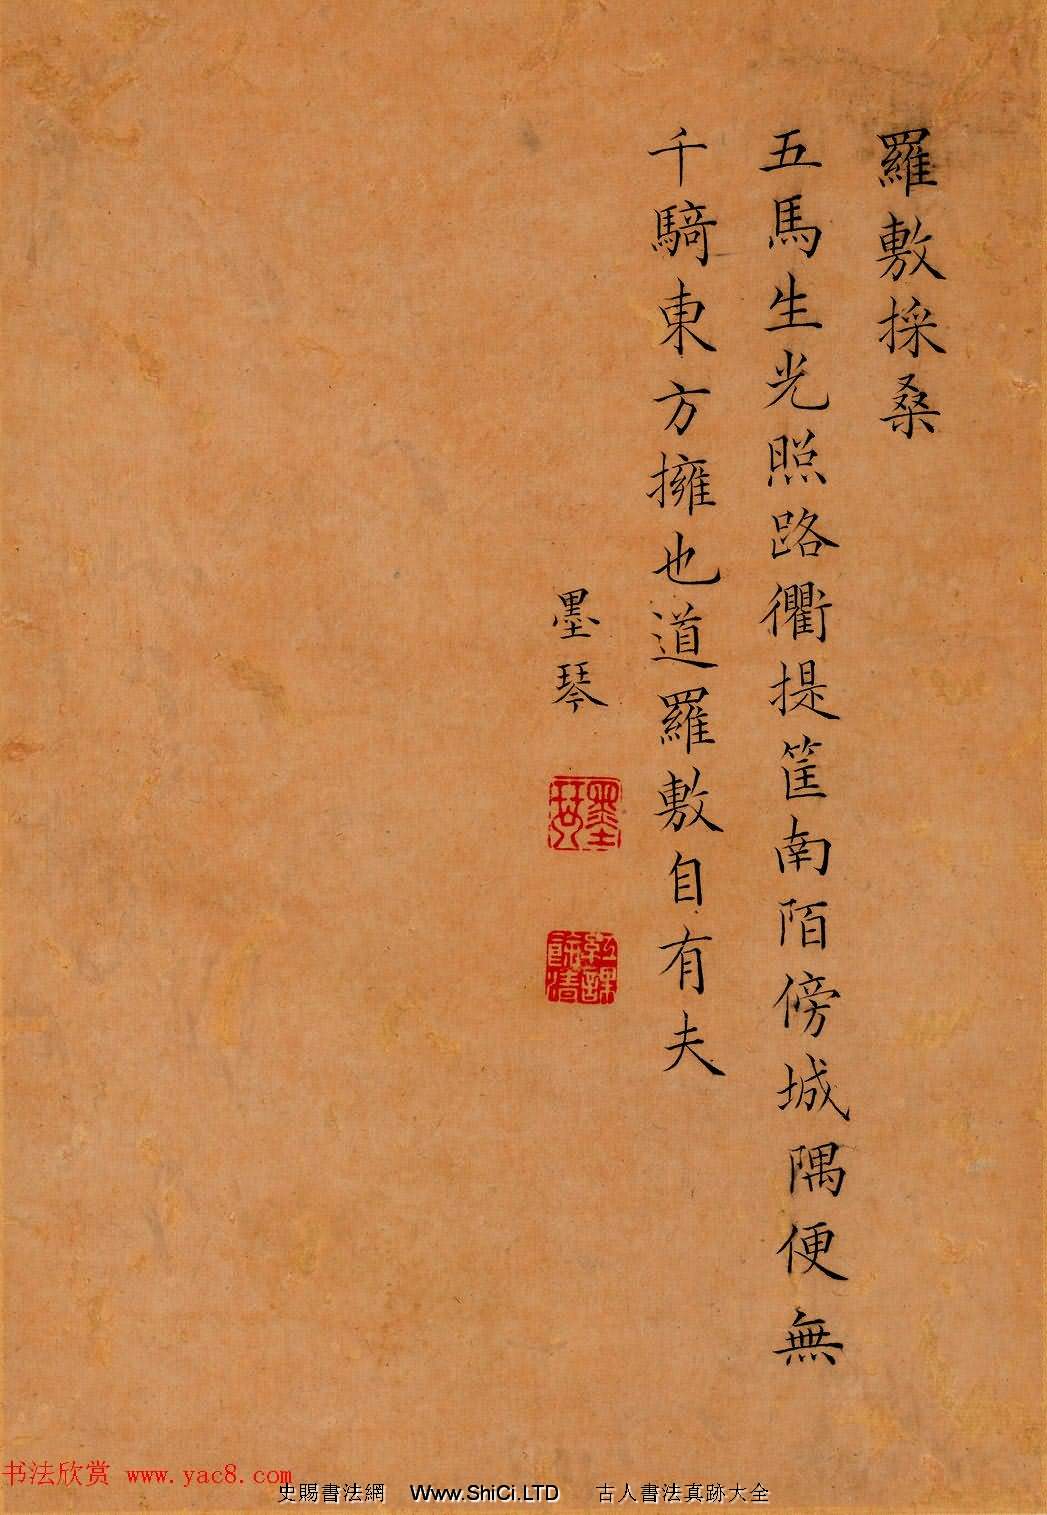 羅敷採桑
五馬生光照路衢提筐南陌傍城隅便無
千騎東方擁也道羅敷自有夫
墨琴
墨琴
紅餘清課
书法欣赏 www.yac8.com
史賜書法網 Www.ShiCi.LTD 古人書法真跡大全